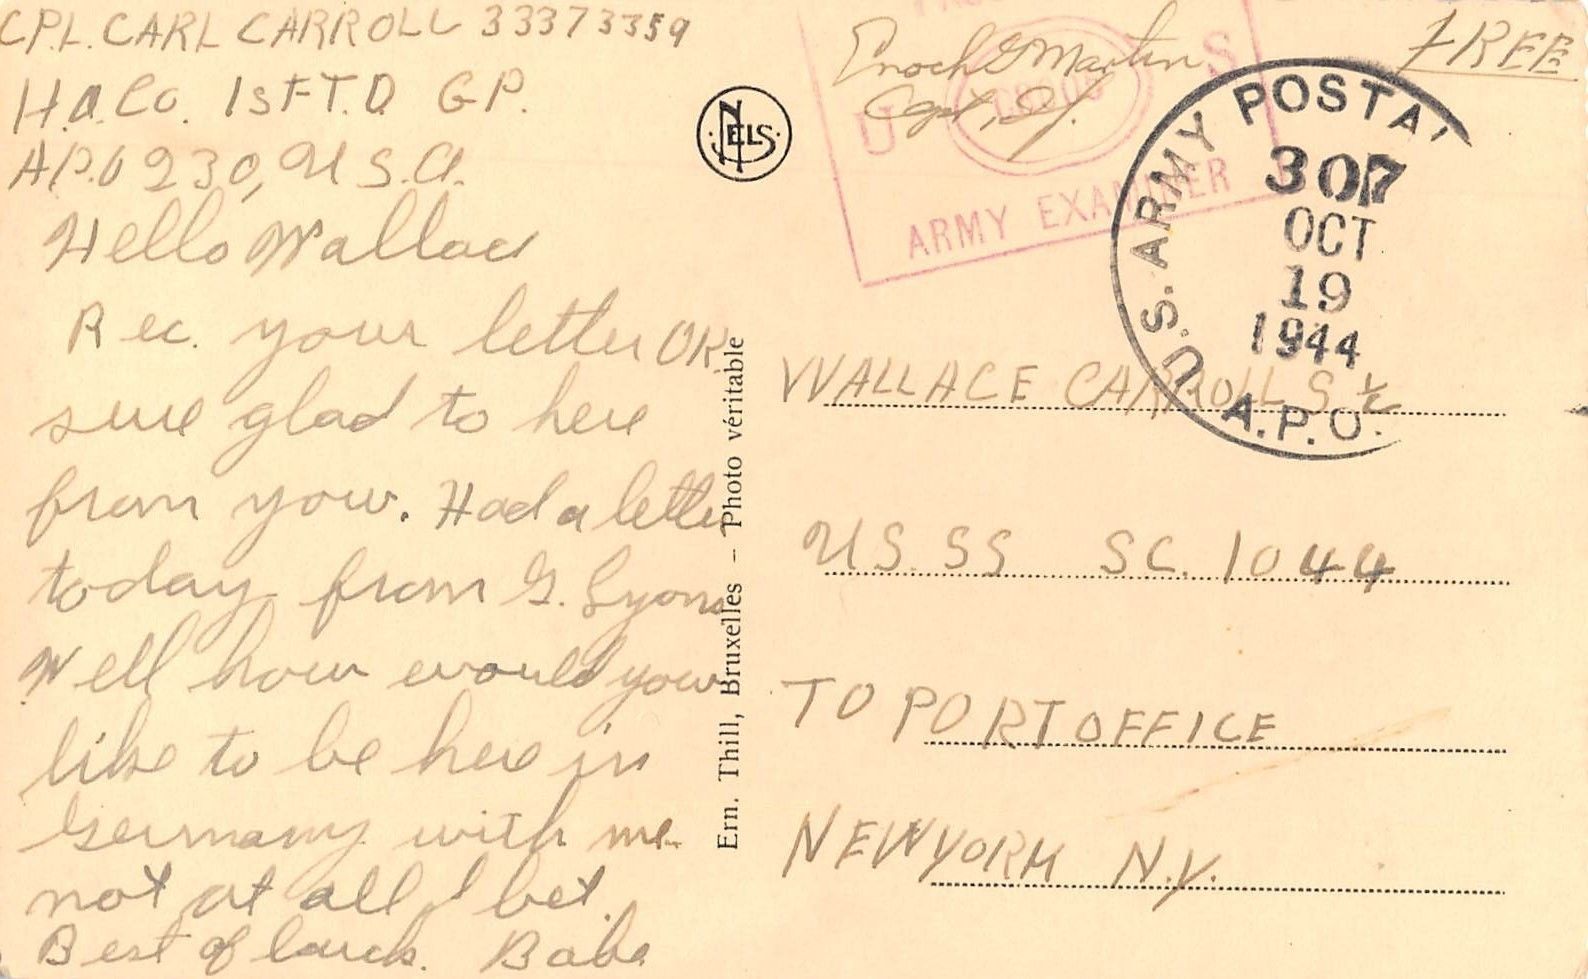 CPL. CARL CARROLL 33373359
H.Q. Co. 1st T.D. GP.
A.P.O 230, U.S.A.
Hello Wallace
Rec. your letter OK.
sure glad to here
from you. Had a letter
today from G. Lyons
Well how would you
like to be here in
Germany with me
not at all I bet.
Best of luck. Babe
NELS
Ern. Thill, Bruxelles – Photo véritable
Enoch G Martin
Capt,
FREE
U S
ARMY EXAMINER
U.S. ARMY POSTAL
307
OCT
19
1944
A.P.O.
WALLACE CARROLL S ½
U.S. SS SC. 1044
TO PORT OFFICE
NEW YORK N.Y.